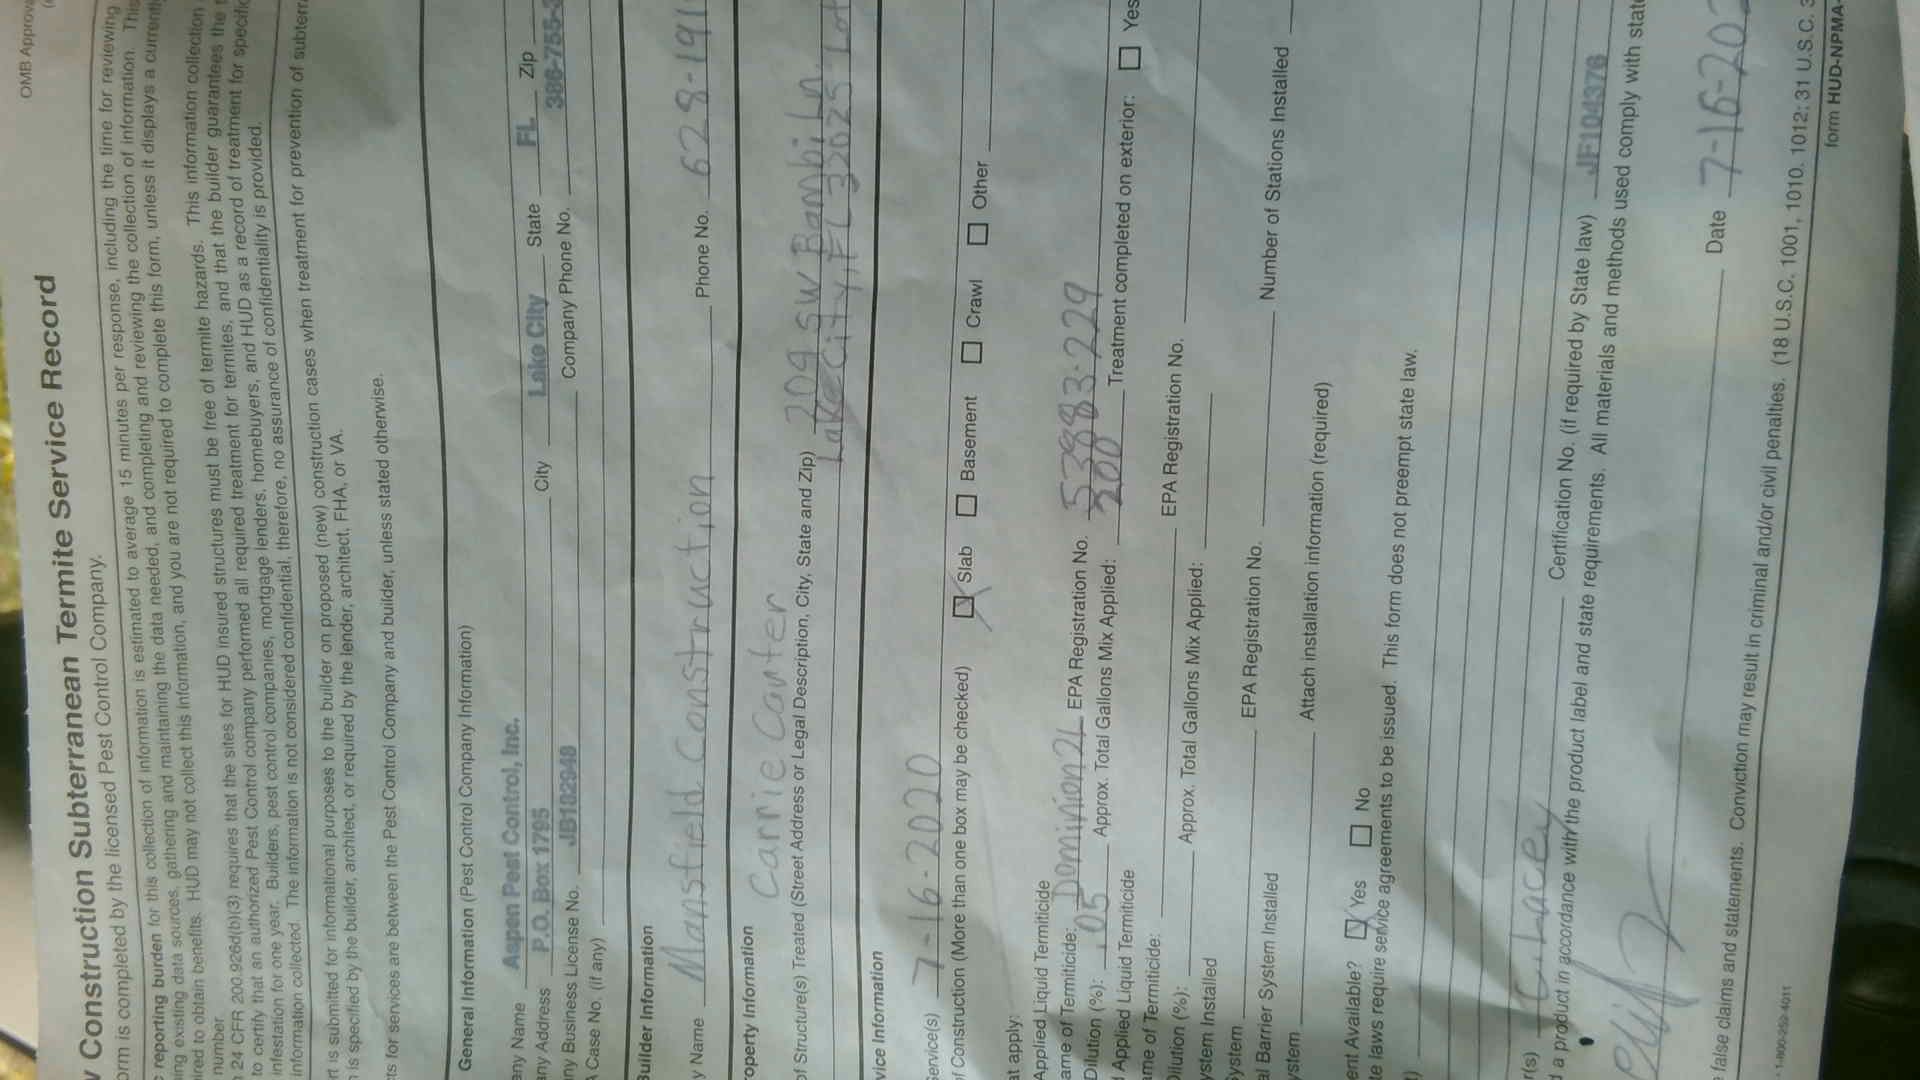 OMB Approva
v Construction Subterranean Termite Service Record
orm is completed by the licensed Pest Control Company.
c reporting burden for this collection of information is estimated to average 15 minutes per response, including the time for reviewing
ing existing data sources, gathering and maintaining the data needed, and completing and reviewing the collection of information. This
ired to obtain benefits. HUD may not collect this information, and you are not required to complete this form, unless it displays a currently
number.
n 24 CFR 200.926d(b)(3) requires that the sites for HUD insured structures must be free of termite hazards. This information collection
to certify that an authorized Pest Control company performed all required treatment for termites, and that the builder guarantees the t
infestation for one year. Builders, pest control companies, mortgage lenders, homebuyers, and HUD as a record of treatment for specific
information collected. The information is not considered confidential, therefore, no assurance of confidentiality is provided.
rt is submitted for informational purposes to the builder on proposed (new) construction cases when treatment for prevention of subterra
n is specified by the builder, architect, or required by the lender, architect, FHA, or VA.
cts for services are between the Pest Control Company and builder, unless stated otherwise.
General Information (Pest Control Company Information)
any Name Aspen Pest Control, Inc.
any Address P.O. Box 1795 City Lake City State FL Zip
ny Business License No. JB182948 Company Phone No. 386-755-3
A Case No. (if any)
Builder Information
y Name Mansfield Construction Phone No. 628-191
operty Information Carrie Canter
of Structure(s) Treated (Street Address or Legal Description, City, State and Zip) 204 SW Bambi Ln.
Lake City, FL 32025 Lot
vice Information
Service(s) 7-16-2020
of Construction (More than one box may be checked) Slab Basement Crawl Other
at apply:
Applied Liquid Termiticide
ame of Termiticide: Dominion 2L EPA Registration No. 53883-229
Dilution (%): .05 Approx. Total Gallons Mix Applied: 200 Treatment completed on exterior: Yes
d Applied Liquid Termiticide
me of Termiticide: EPA Registration No.
Dilution (%): Approx. Total Gallons Mix Applied:
ystem Installed
System EPA Registration No. Number of Stations Installed
al Barrier System Installed
ystem Attach installation information (required)
ent Available? Yes No
te laws require service agreements to be issued. This form does not preempt state law.
r(s) C. Lacey Certification No. (if required by State law) JF104376
d a product in accordance with the product label and state requirements. All materials and methods used comply with state
Date 7-16-202
false claims and statements. Conviction may result in criminal and/or civil penalties. (18 U.S.C. 1001, 1010, 1012; 31 U.S.C. 3
1-800-252-4011 form HUD-NPMA-